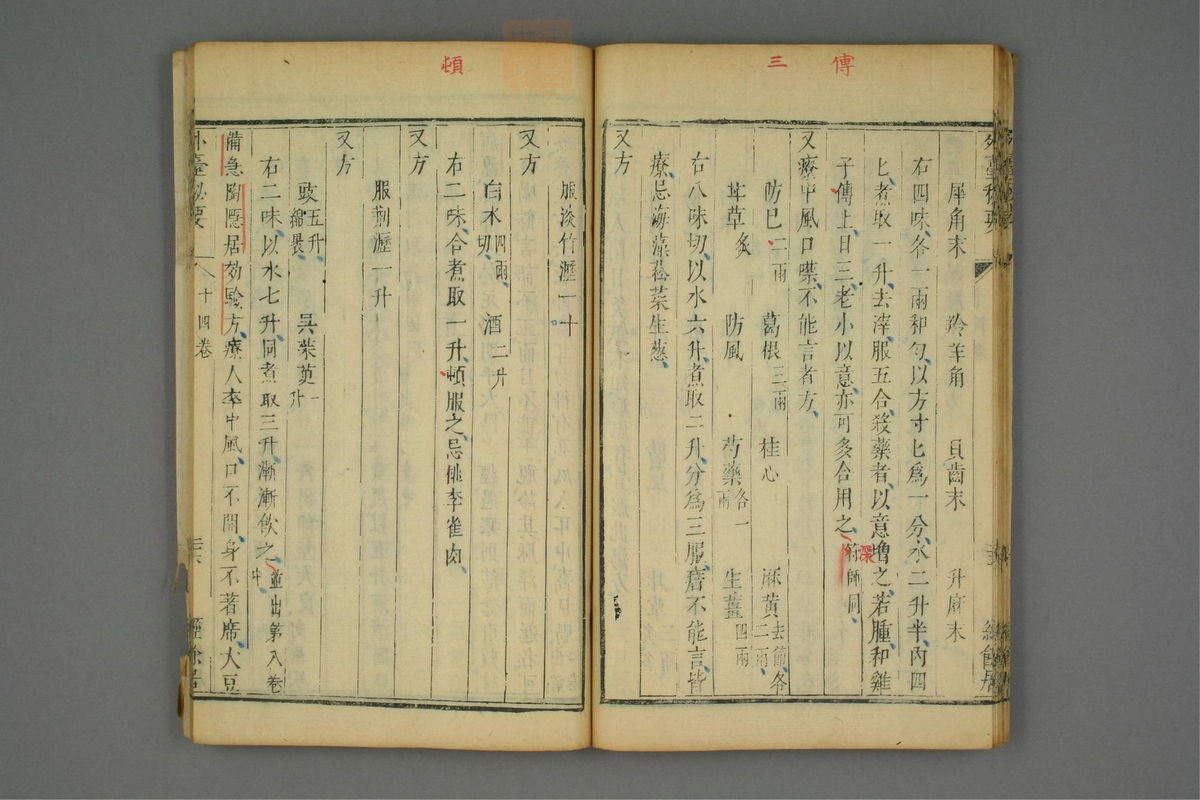 傳
三
犀角末 羚羊角 貝齒末 升麻末
右四味各一兩和勻以方寸匕爲一分水二升半內四
匕煮取一升去滓服五合殺藥者以意增之若腫和雞
子傅上日三老小以意亦可多合用之 師同
深
又療中風口噤不能言者方
防巳二兩 葛根三兩 桂心 麻黃去節各二兩
甘草炙 防風 芍藥各一兩 生薑四兩
右八味切以水六升煮取二升分爲三服瘖不能言皆
療忌海藻菘菜生葱
又方
頓
服淡竹瀝一十
又方
白朮四兩切 酒二升
右二味合煮取一升頓服之忌桃李雀肉
又方
服荆瀝一升
又方
豉五升綿裹 吳茱萸一升
右二味以水七升同煮取三升漸漸飲之並出第八卷中
備急胸隱居効驗方療人卒中風口不開身不著席大豆
外臺秘要 十四卷 經餘居